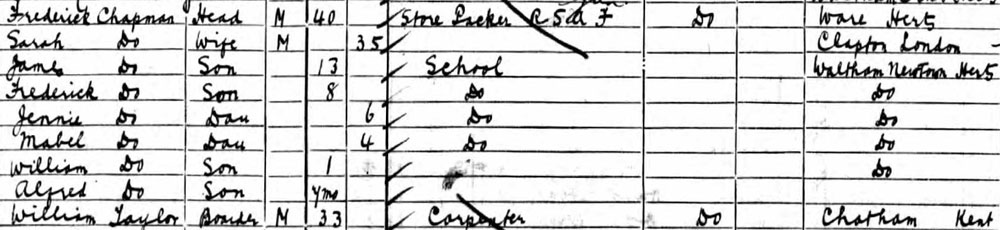 Frederick Chapman Head M 40 Store Packer R S a F Do Ware Herts
Sarah Do Wife M 35 Clapton London
James Do Son 13 School Waltham Newtown Herts
Frederick Do Son 8 Do Do
Jennie Do Dau 6 Do Do
Mabel Do Dau 4 Do Do
William Do Son 1 Do
Alfred Do Son 4mo
William Taylor Boarder M 33 Carpenter Do Chatham Kent